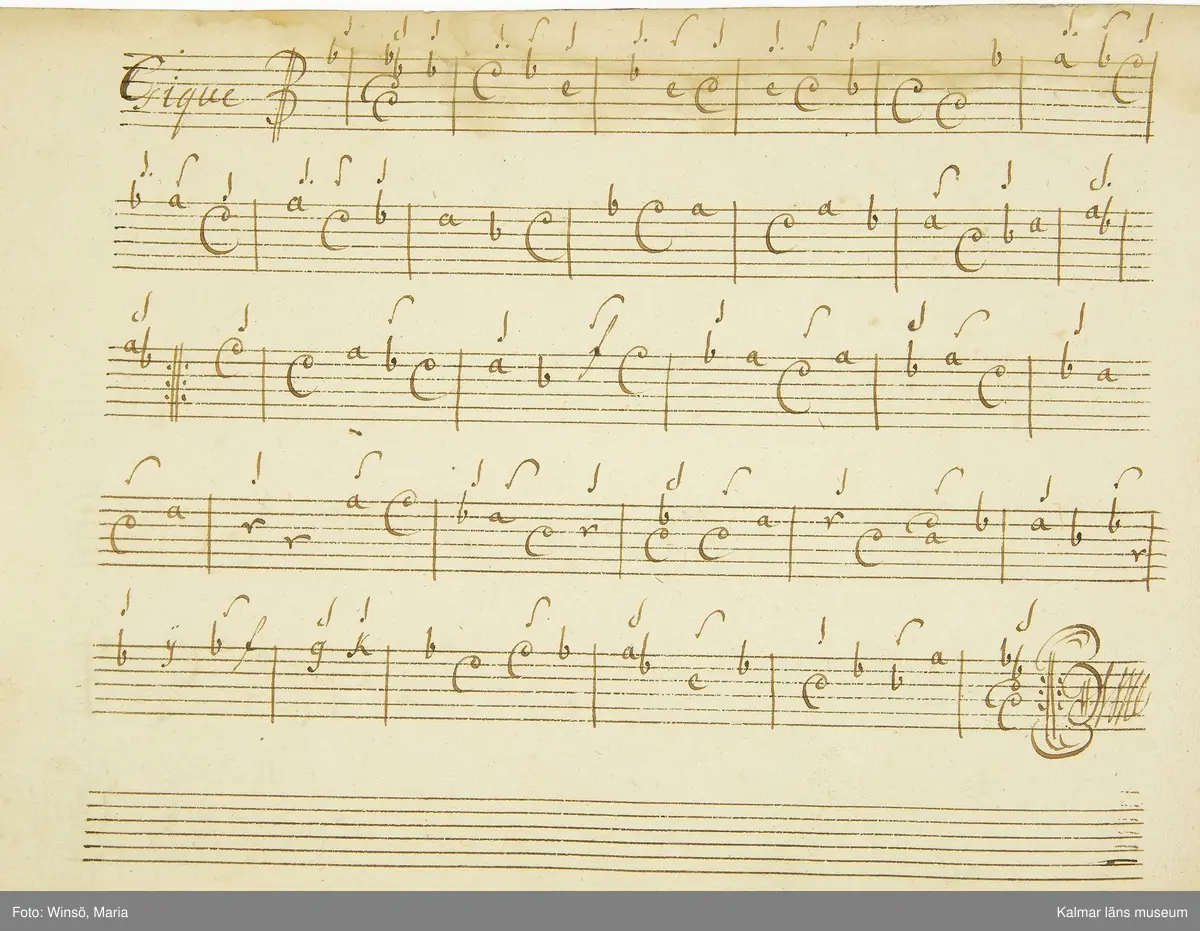 Gique
b b b b c b e b e c e c b c c b a b c
b a c a c b a b c b c a c a b a c b a a b
a b c c a b c a b f c b a c a b a c b a
c a r r a c b a c r b c c a r c c a b a b b r
b ÿ b f g k b c c b a b e b c b b a b b c c
Foto: Winsö, Maria
Kalmar läns museum